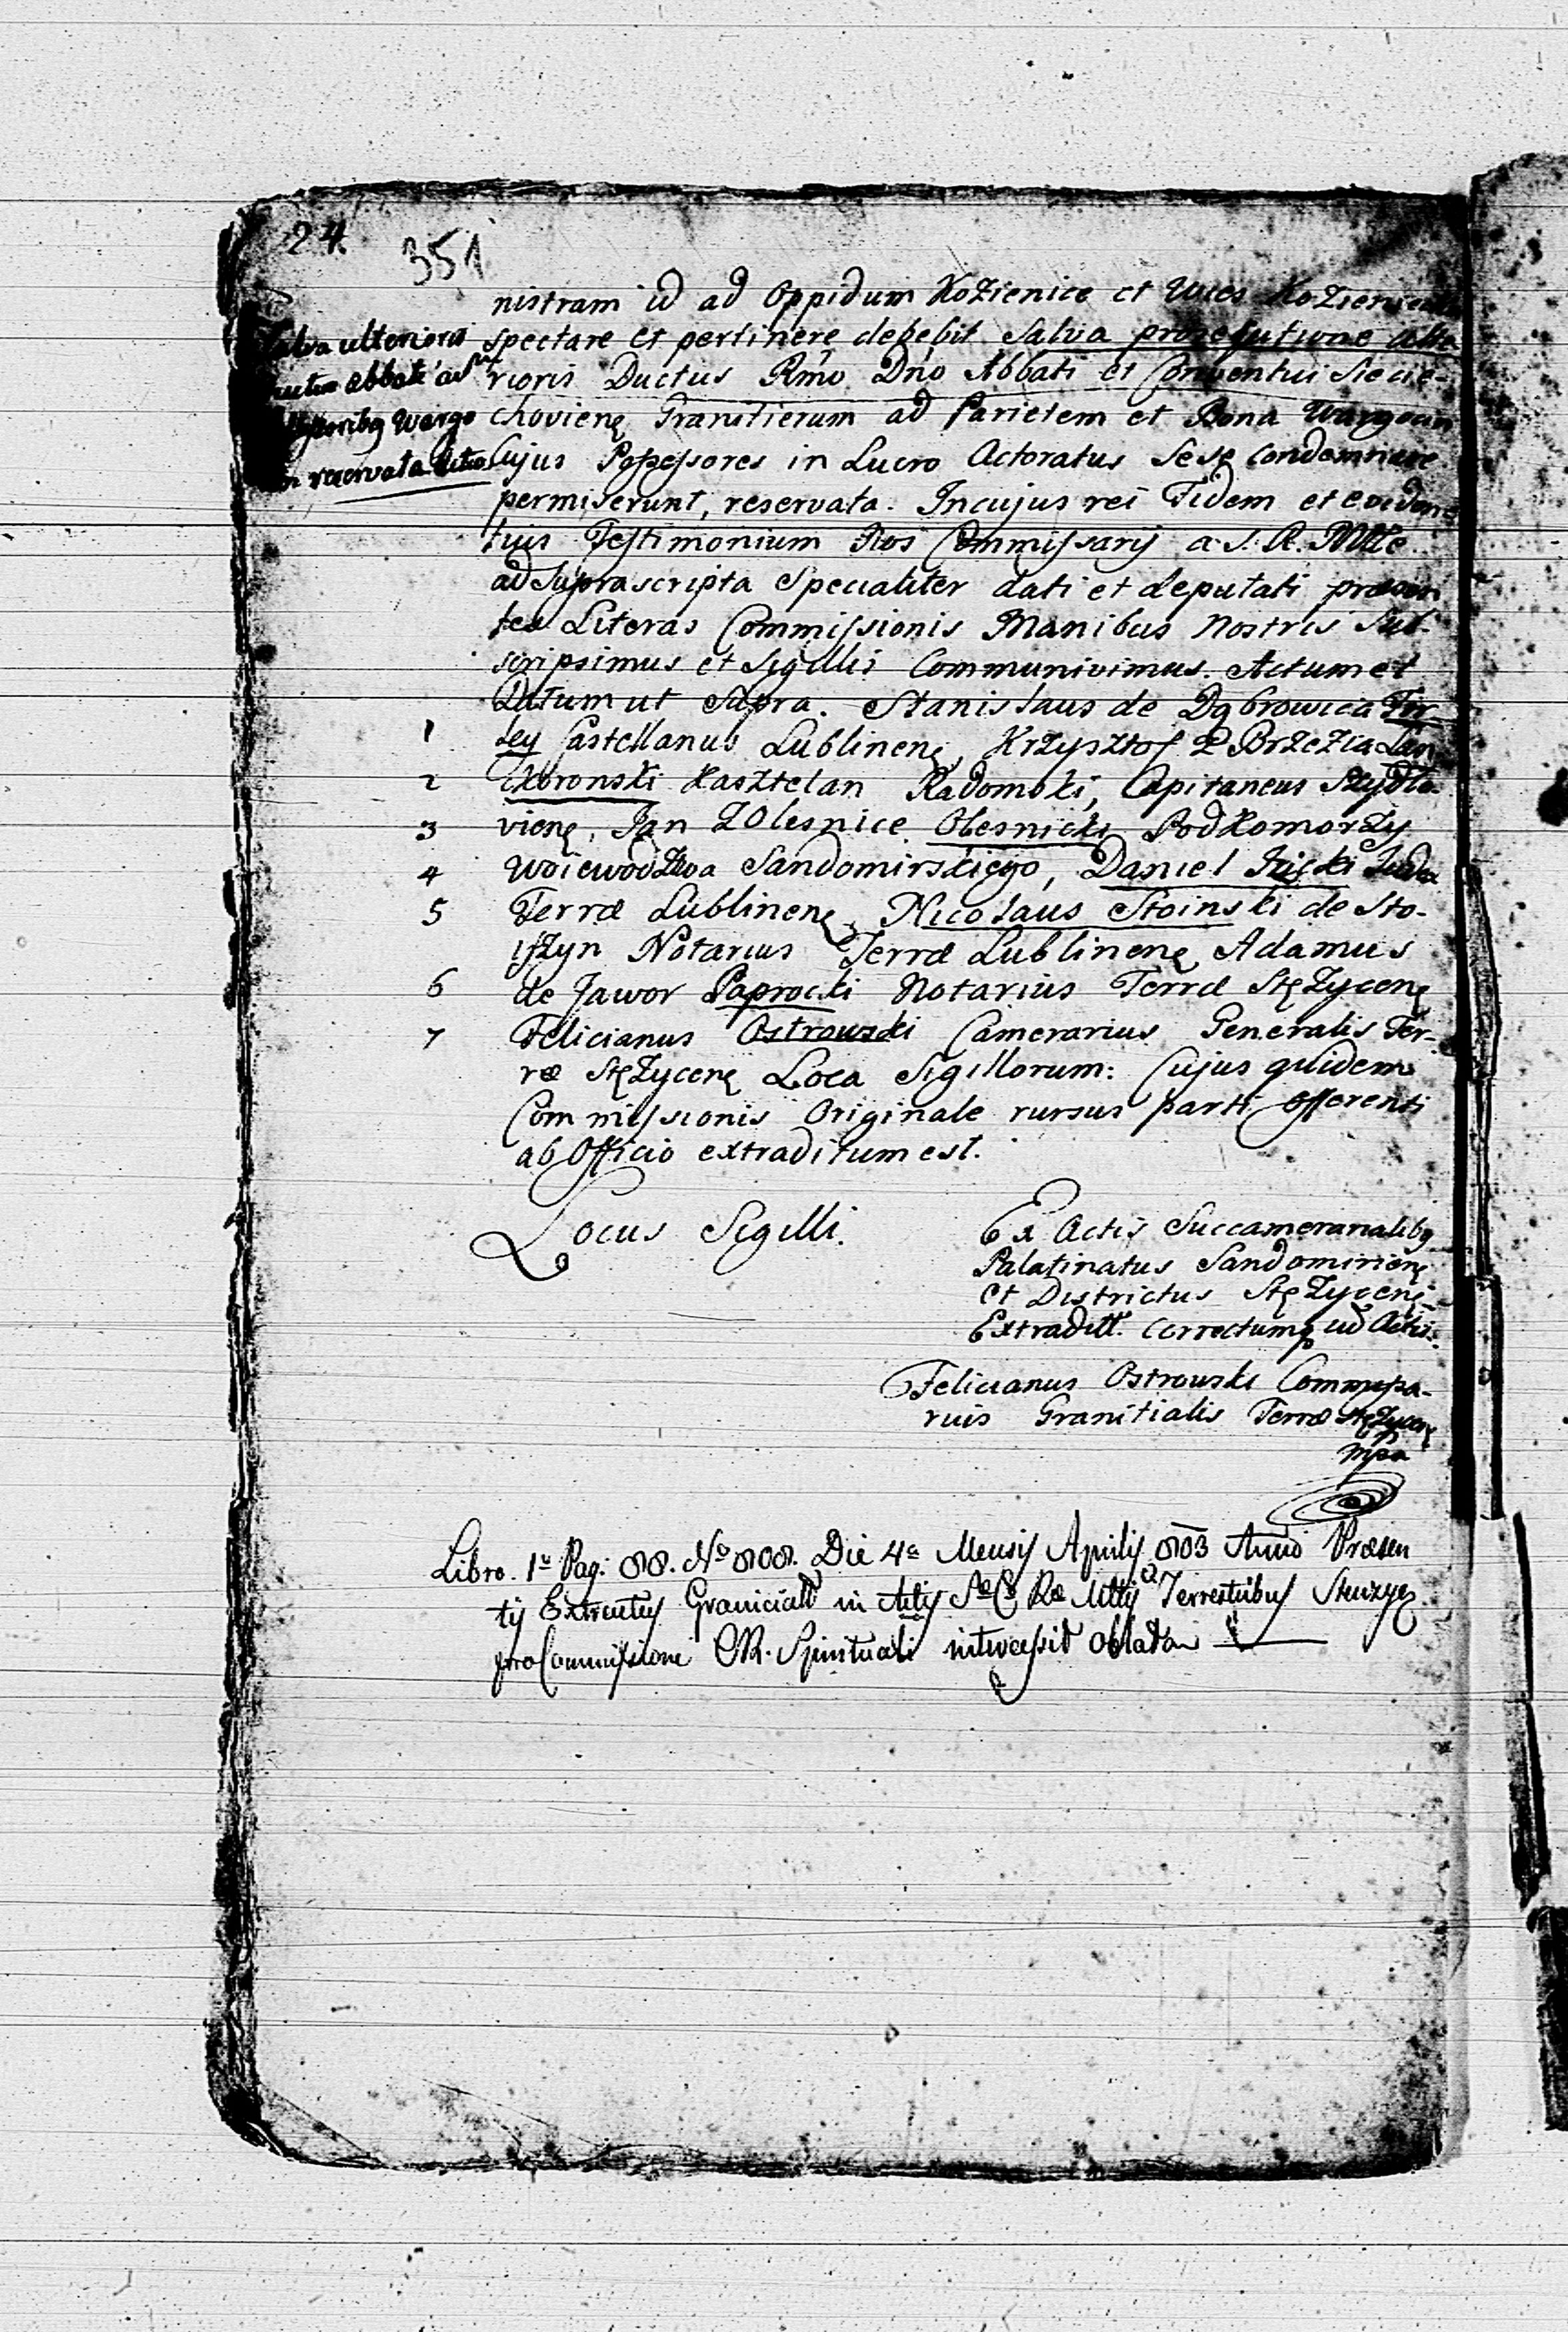 24.
351
nistram id ad Oppidum Kozienice et Wies
spectare et pertinere debebit. Salva prosequtione ulte
rioris Ductus Rm̃o Dño Abbati et Conventui Siecie-
chovienę Granitierum ad Parietem et Bona
Cujus Possessores in Lucro Actoratus Sese Condemnare
permiserunt, reservata. Incujus rei Fidem et eviden
tius Testimonium Nos Commissarij a S. R. Mtte
ad Suprascripta Specialiter dati et deputati præsen
tes Literas Commissionis Manibus Nostris Sub-
scripsimus et Sigillis Communivimus. Actum et
Datum ut Supra. Stanislaus de Dąbrowica Fir-
1 ley Castellanus Lublinenę Krzysztof Z Brzezia Lan
2 ckoronski Kasztelan Radomski, Capitaneus Szydło-
3 vienę, Jan Z Olesnice Olesnicki Podkomorzy
4 Woiewodztwa Sandomirskiego, Daniel Judex
5 Terræ Lublinenę, Nicolaus Stoinski de Sto-
iszyn Notarius Terræ Lublinenę Adamus
6 de Jawor Paprocki Notarius Terræ Stężycenę
7 Felicianus Ostrowski Camerarius Generalis Ter-
ræ Stężycenę Loca Sigillorum: Cujus quidem
Commissionis Originale rursus parti offerenti
ab Officio extraditum est.
Salva ulterioris
Abbati ad
Wargo
reservata
Locus Sigilli.
Ex Actis Succameralibq
Palatinatus Sandomirienę
et Districtus Stężycenę
Extraditt. Correctumq cũ Actis.
Felicianus Ostrowski
Granitialis Terræ Stężycenę
mpa
Libro. 1º Pag: 88. Nº 808. Die 4ª Mensis Aprilis 803 Anno Præsen
tis Graniciale in Actis Terrestribus
pro Commissione Spirituali intercessit oblatam